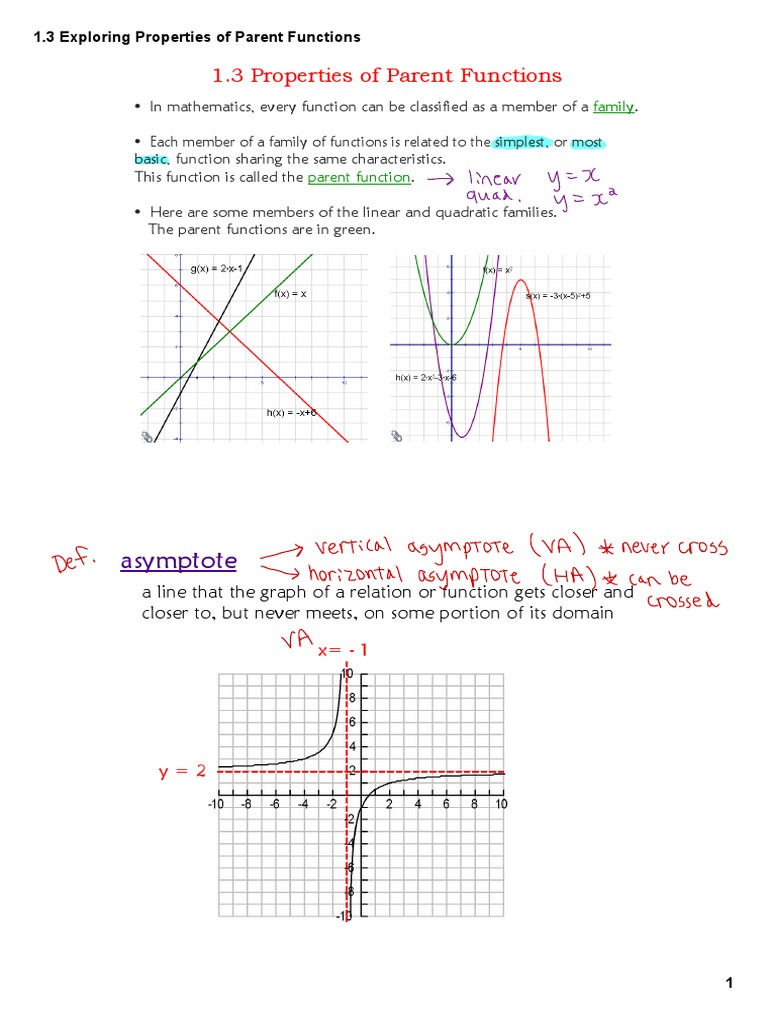 1.3 Exploring Properties of Parent Functions
1.3 Properties of Parent Functions
• In mathematics, every function can be classified as a member of a family.
• Each member of a family of functions is related to the simplest, or most
basic, function sharing the same characteristics.
This function is called the parent function. → linear y = x
quad. y = x²
• Here are some members of the linear and quadratic families.
The parent functions are in green.
g(x) = 2·x-1
f(x) = x
h(x) = -x+6
f(x) = x²
s(x) = -3·(x-5)²+5
h(x) = 2·x²-3·x-6
Def. asymptote → vertical asymptote (VA) * never cross
→ horizontal asymptote (HA) * can be
crossed
a line that the graph of a relation or function gets closer and
closer to, but never meets, on some portion of its domain
VA
x= -1
10
8
6
4
y = 2
2
-10 -8 -6 -4 -2 2 4 6 8 10
-2
-4
-6
-8
-10
1